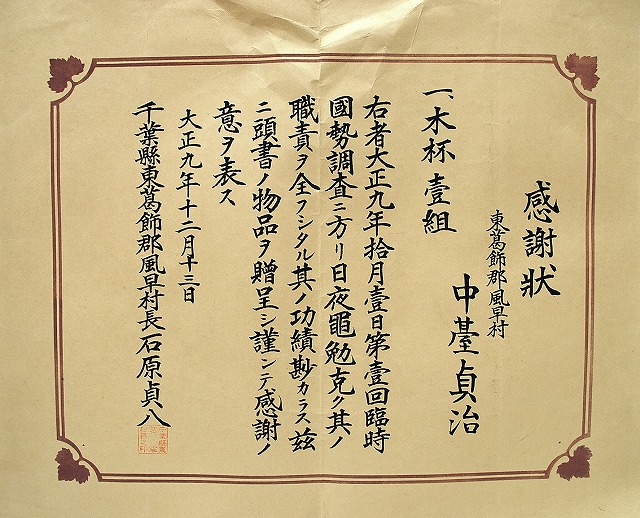 感謝狀
東葛飾郡風早村
中臺貞治
一、木杯壹組
右者大正九年拾月壹日第壹回臨時
國勢調査ニ方リ日夜黽勉克ク其ノ
職責ヲ全フシタル其ノ功績尠カラス玆
ニ頭書ノ物品ヲ贈呈シ謹ンテ感謝ノ
意ヲ表ス
大正九年十二月十三日
千葉縣東葛飾郡風早村長石原貞八